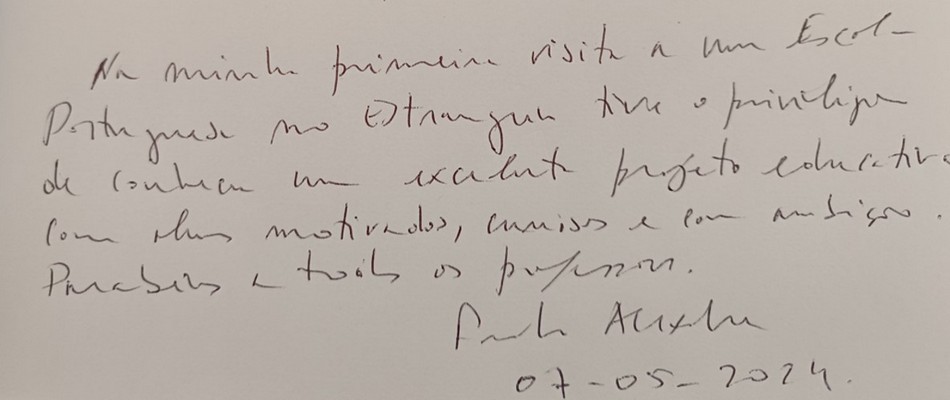 Na minha primeira visita a uma Escola
Portuguesa no Estrangeiro tive o privilégio
de conhecer um excelente projeto educativo
com alunos motivados, curiosos e com ambição.
Parabéns a todos os professores.
Alexandre
07-05-2024.